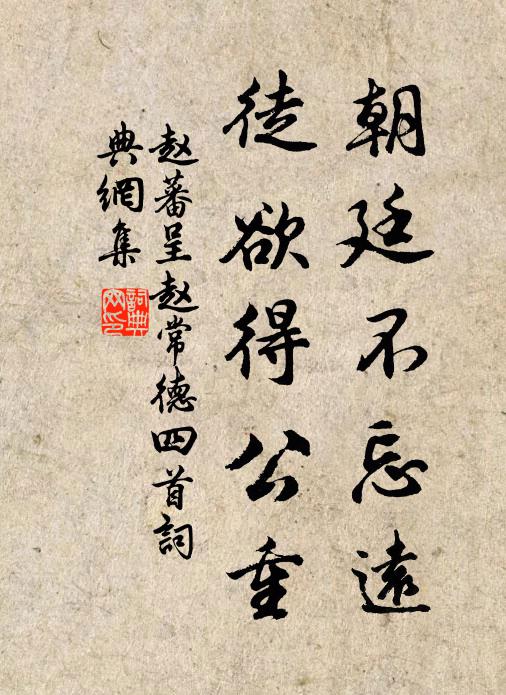 朝廷不忘遠
徒欲得公重
赵蕃呈赵常德四首詞
典網集
詞典
网印